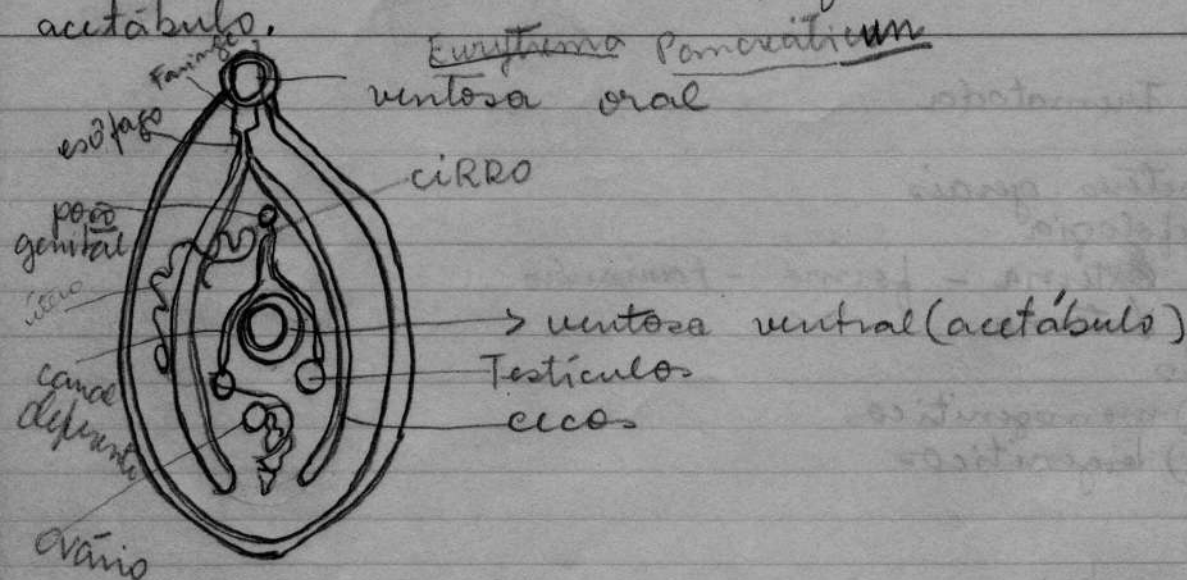 acetábulo.
Eurytrema Pancreáticum
Faringe
ventosa oral
esôfago
CIRRO
poro
genital
útero
> ventosa ventral (acetábulo)
canal
deferente
Testículos
cecos
ovário